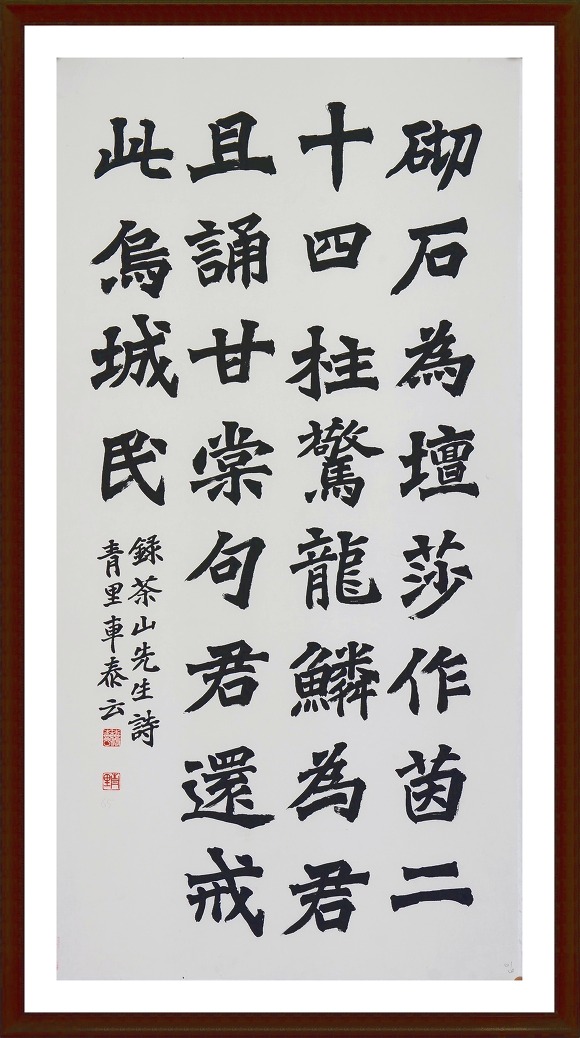 砌石為壇莎作茵二
十四柱驚龍鱗為君
且誦甘棠句君還戒
此烏城民
録茶山先生詩
青里車泰云
青里